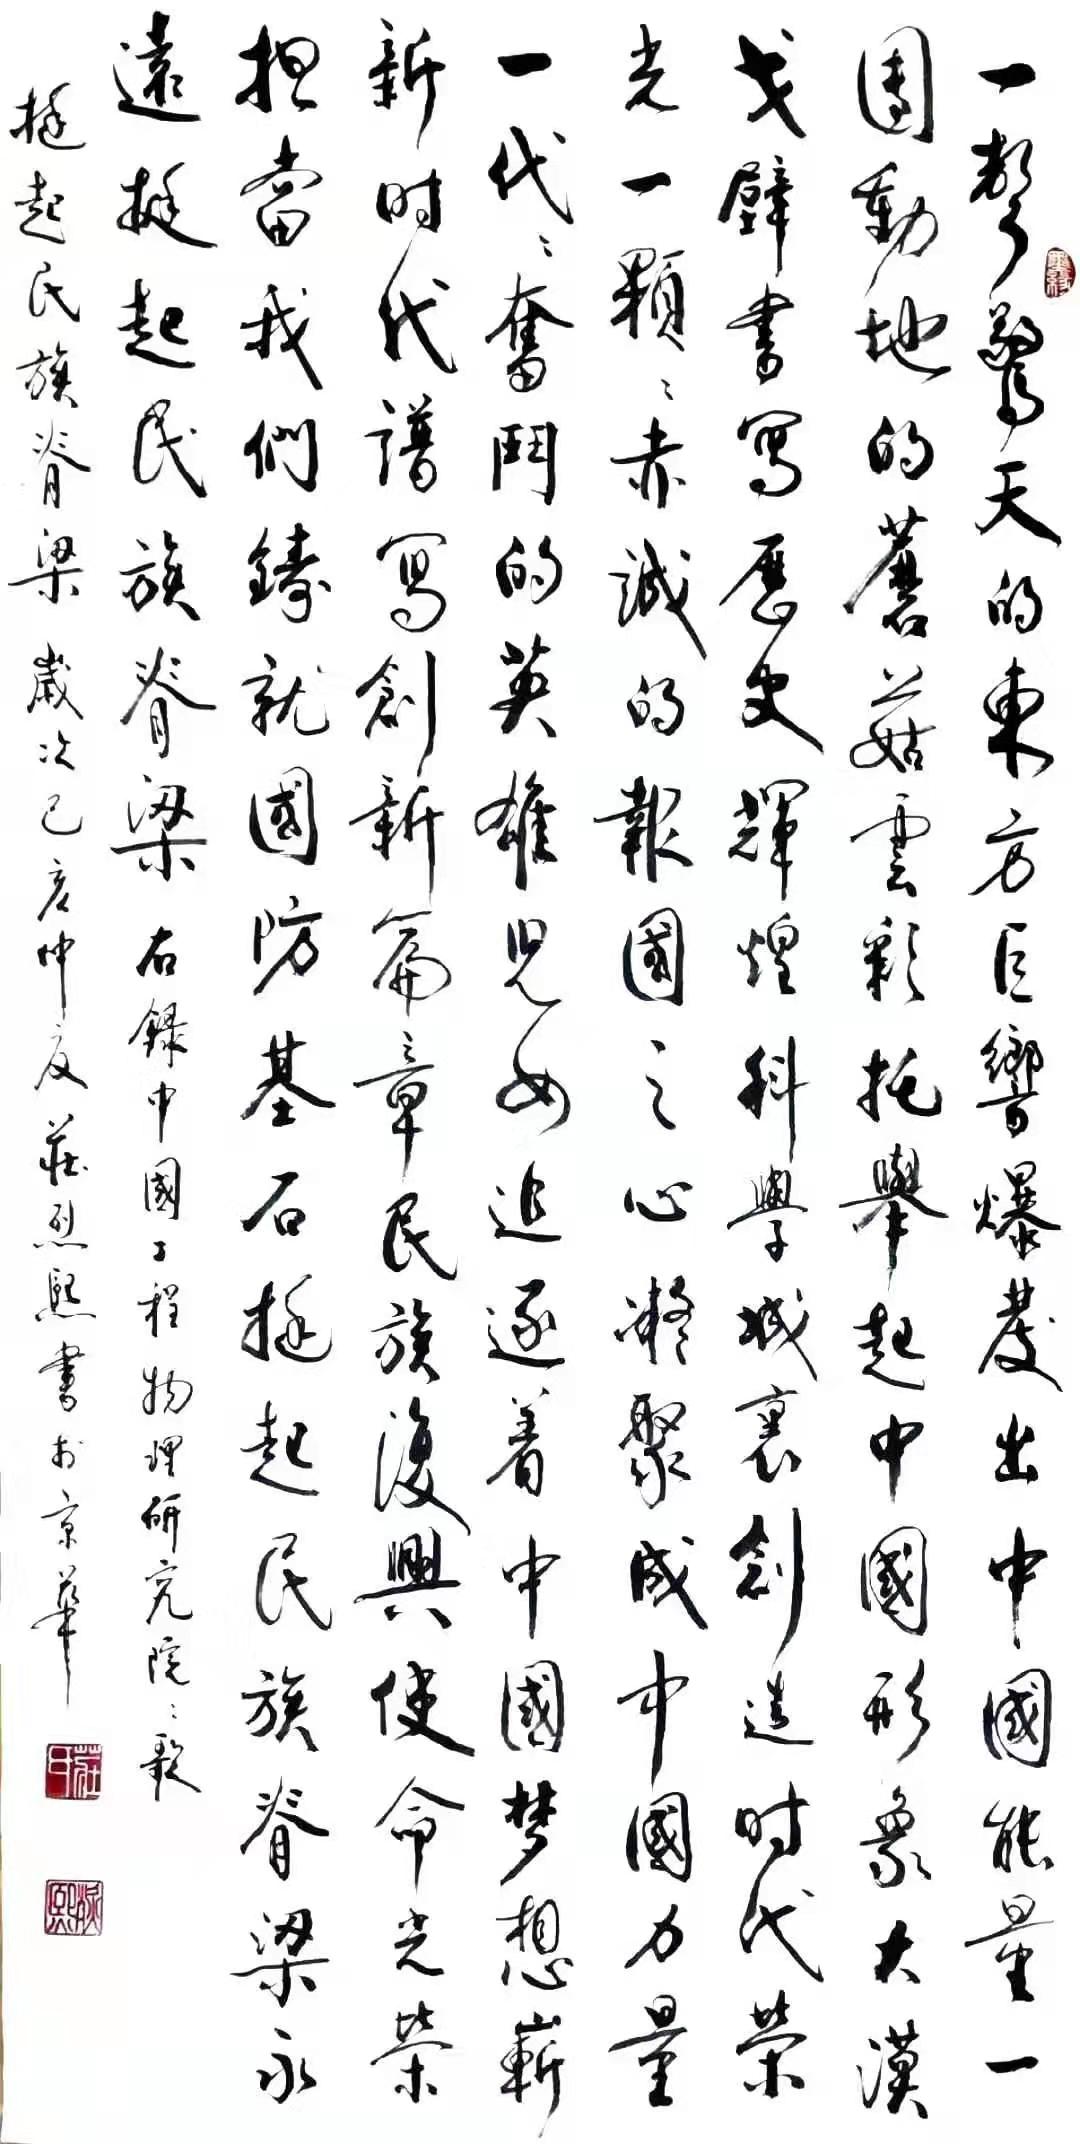 一聲驚天的東方巨響爆發出中國能量一
團動地的蘑菇雲彩托舉起中國形象大漠
戈壁書寫歷史輝煌科學城裏創造时代榮
光一顆〻赤誠的報國之心凝聚成中國力量
一代〻奮鬥的英雄児女追逐着中國梦想嶄
新时代譜寫創新篇章民族復興使命光榮
担當我們鑄就國防基石挺起民族脊梁永
遠挺起民族脊梁 右錄中國工程物理研究院〻歌
挺起民族脊梁 歲次己亥仲夏莊烈熙書於京華